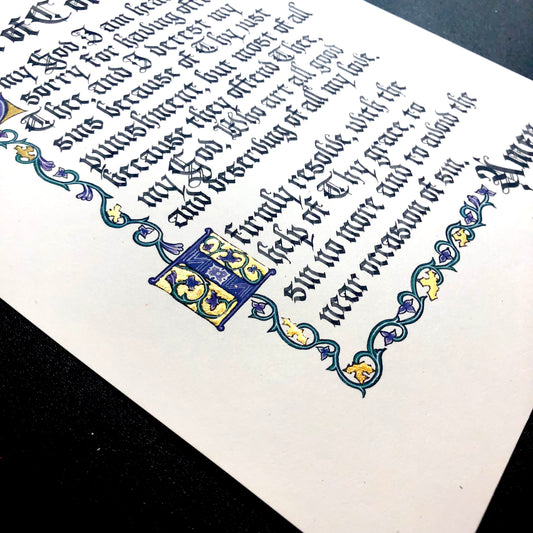 of C
my God, I am hea
sorry for having offe
Thee, and I detest my
sins because of Thy just
punishment, but most of all
because they offend Thee,
my God, Who art all good
and deserving of all my love.
I firmly resolve with the
help of Thy grace, to
sin no more and to avoid the
near occasion of sin
Amen